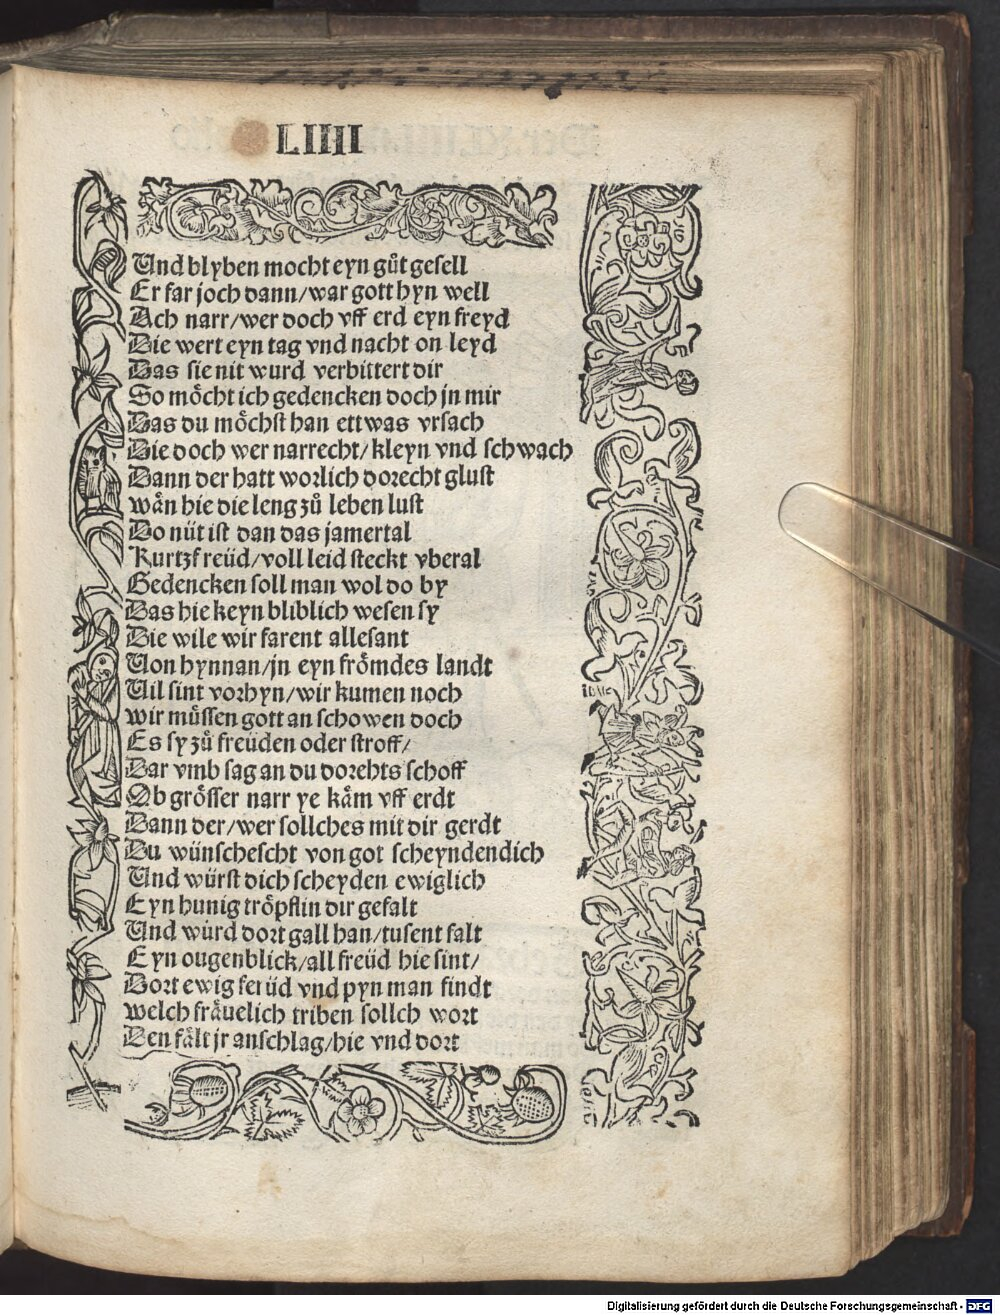 LIIII
Und blyben mocht eyn gůt gesell
Er far joch dann/war gott hyn well
Ach narr/wer doch vff erd eyn freyd
Die wert eyn tag vnd nacht on leyd
Das sie nit wurd verbittert dir
So mőcht ich gedencken doch jn mir
Das du mőchst han ettwas vrsach
Die doch wer narrecht/kleyn vnd schwach
Dann der hatt worlich dorecht glust
wăn hie die leng zů leben lust
Do nüt ist dan das jamertal
Kurtz freüd/voll leid steckt vberal
Gedencken soll man wol do by
Das hie keyn bliblich wesen sy
Die wile wir farent allesant
Von hynnan/jn eyn frőmdes landt
Vil sint vorhyn/wir kumen noch
wir müssen gott an schowen doch
Es sy zů freüden oder stroff/
Dar vmb sag an du dorehts schoff
Ob grősser narr ye kăm vff erdt
Dann der/wer sollches mit dir gerdt
Du wünschescht von got scheyndendich
Und würst dich scheyden ewiglich
Eyn hunig trőpflin dir gefalt
Und würd dort gall han/tusent falt
Eyn ougenblick/all freüd hie sint/
Dort ewig ferüd vnd pyn man findt
welch frăuelich triben sollch wort
Den fălt jr anschlag/hie vnd dort
Digitalisierung gefördert durch die Deutsche Forschungsgemeinschaft - DFG